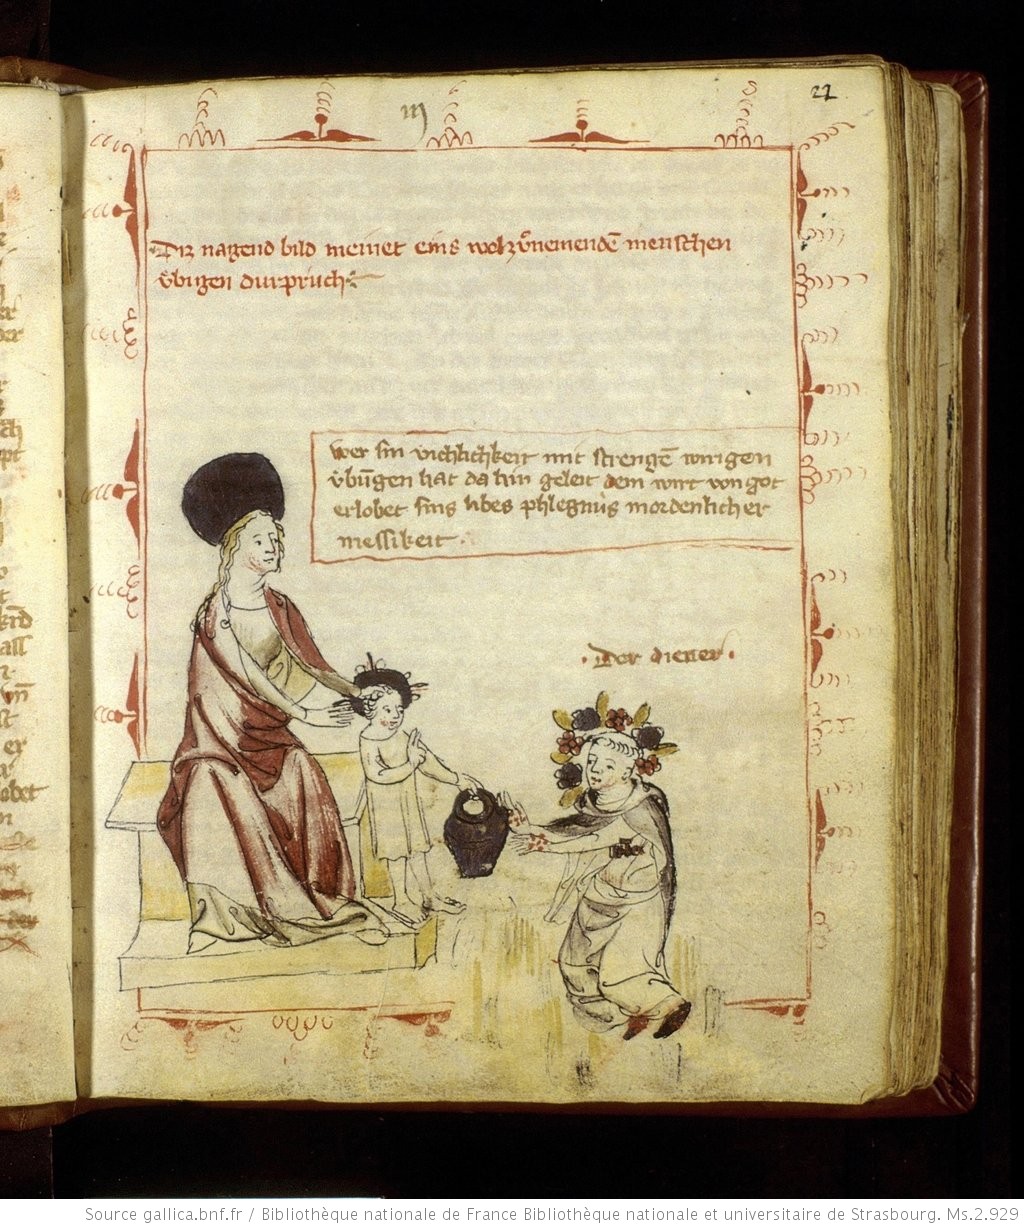 22
iij
Diz nagend bild meinet eins wolzůnemendē menschen
v̊bigen durpruch
wer sin vichlichkeit mit strengē wirigen
v̊būgen hat da hin geleit dem wirt von got
erlobet sins libes phlegnus in ordenlicher
messikeit
Der diener
Source gallica.bnf.fr / Bibliothèque nationale de France Bibliothèque nationale et universitaire de Strasbourg. Ms.2.929